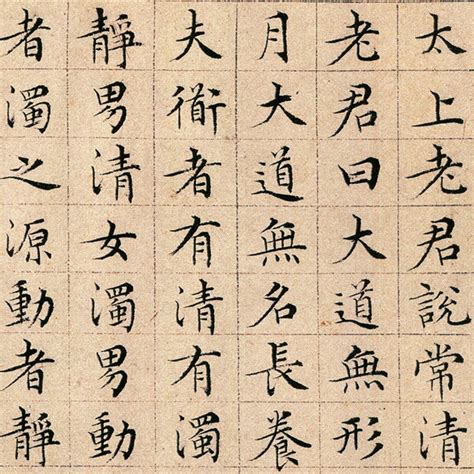 太上老君說常清
老君曰大道無形
月大道無名長養
夫衜者有清有濁
靜男清女濁男動
者濁之源動者靜